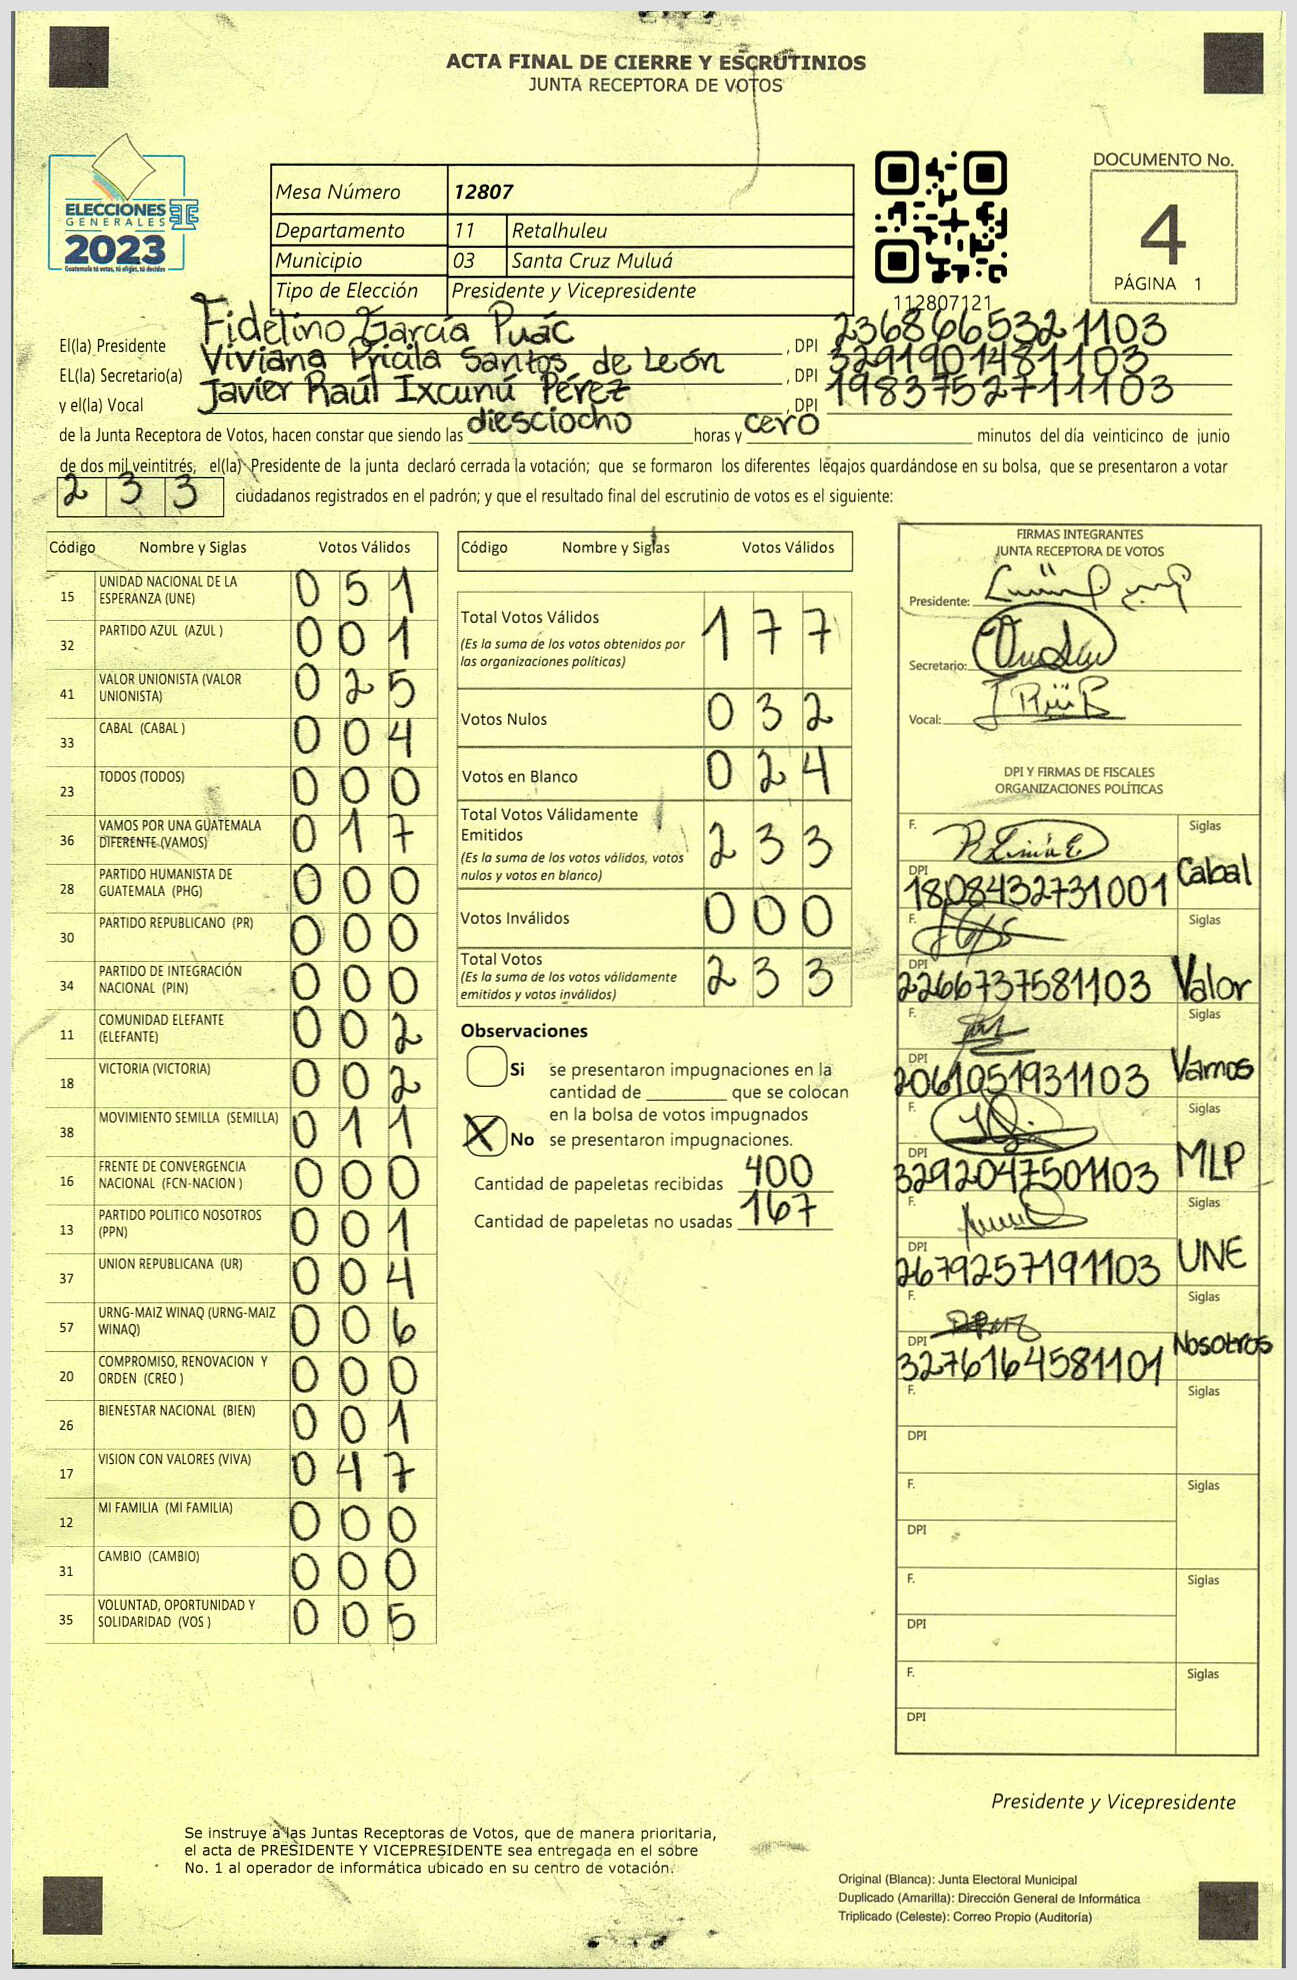 ACTA FINAL DE CIERRE Y ESCRUTINIOS
JUNTA RECEPTORA DE VOTOS
ELECCIONES
GENERALES
2023
Guatemala tú votas, tú eliges, tú decides
Mesa Número 12807
Departamento 11 Retalhuleu
Municipio 03 Santa Cruz Muluá
Tipo de Elección Presidente y Vicepresidente
112807121
DOCUMENTO No.
4
PÁGINA 1
El(la) Presidente Fidelino García Puác, DPI 2368665321103
EL(la) Secretario(a) Viviana Pricila Santos de León, DPI 3291901481103
y el(la) Vocal Javier Raúl Ixcunú Pérez, DPI 1983752711103
de la Junta Receptora de Votos, hacen constar que siendo las diesciocho horas y cero minutos del día veinticinco de junio
de dos mil veintitrés, el(la) Presidente de la junta declaró cerrada la votación; que se formaron los diferentes legajos guardándose en su bolsa, que se presentaron a votar
233 ciudadanos registrados en el padrón; y que el resultado final del escrutinio de votos es el siguiente:
Código Nombre y Siglas Votos Válidos
15 UNIDAD NACIONAL DE LA ESPERANZA (UNE) 051
32 PARTIDO AZUL (AZUL ) 001
41 VALOR UNIONISTA (VALOR UNIONISTA) 025
33 CABAL (CABAL ) 004
23 TODOS (TODOS) 000
36 VAMOS POR UNA GUATEMALA DIFERENTE (VAMOS) 017
28 PARTIDO HUMANISTA DE GUATEMALA (PHG) 000
30 PARTIDO REPUBLICANO (PR) 000
34 PARTIDO DE INTEGRACIÓN NACIONAL (PIN) 000
11 COMUNIDAD ELEFANTE (ELEFANTE) 002
18 VICTORIA (VICTORIA) 002
38 MOVIMIENTO SEMILLA (SEMILLA) 011
16 FRENTE DE CONVERGENCIA NACIONAL (FCN-NACION ) 000
13 PARTIDO POLITICO NOSOTROS (PPN) 001
37 UNION REPUBLICANA (UR) 004
57 URNG-MAIZ WINAQ (URNG-MAIZ WINAQ) 006
20 COMPROMISO, RENOVACION Y ORDEN (CREO ) 000
26 BIENESTAR NACIONAL (BIEN) 001
17 VISION CON VALORES (VIVA) 047
12 MI FAMILIA (MI FAMILIA) 000
31 CAMBIO (CAMBIO) 000
35 VOLUNTAD, OPORTUNIDAD Y SOLIDARIDAD (VOS ) 005
Código Nombre y Siglas Votos Válidos
Total Votos Válidos 177
(Es la suma de los votos obtenidos por
las organizaciones políticas)
Votos Nulos 032
Votos en Blanco 024
Total Votos Válidamente
Emitidos 233
(Es la suma de los votos válidos, votos
nulos y votos en blanco)
Votos Inválidos 000
Total Votos 233
(Es la suma de los votos válidamente
emitidos y votos inválidos)
Observaciones
Si se presentaron impugnaciones en la
cantidad de ________ que se colocan
en la bolsa de votos impugnados
X No se presentaron impugnaciones.
Cantidad de papeletas recibidas 400
Cantidad de papeletas no usadas 167
FIRMAS INTEGRANTES
JUNTA RECEPTORA DE VOTOS
Presidente:
Secretario:
Vocal:
DPI Y FIRMAS DE FISCALES
ORGANIZACIONES POLÍTICAS
F. Siglas
DPI 1808432731001 Cabal
F. Siglas
DPI 2266737581103 Valor
F. Siglas
DPI 2061051931103 Vamos
F. Siglas
DPI 3292047501103 MLP
F. Siglas
DPI 2679257191103 UNE
F. Siglas
DPI 3276164581101 Nosotros
F. Siglas
DPI
F. Siglas
DPI
F. Siglas
DPI
F. Siglas
DPI
Presidente y Vicepresidente
Se instruye a las Juntas Receptoras de Votos, que de manera prioritaria,
el acta de PRESIDENTE Y VICEPRESIDENTE sea entregada en el sobre
No. 1 al operador de informática ubicado en su centro de votación.
Original (Blanca): Junta Electoral Municipal
Duplicado (Amarilla): Dirección General de Informática
Triplicado (Celeste): Correo Propio (Auditoría)